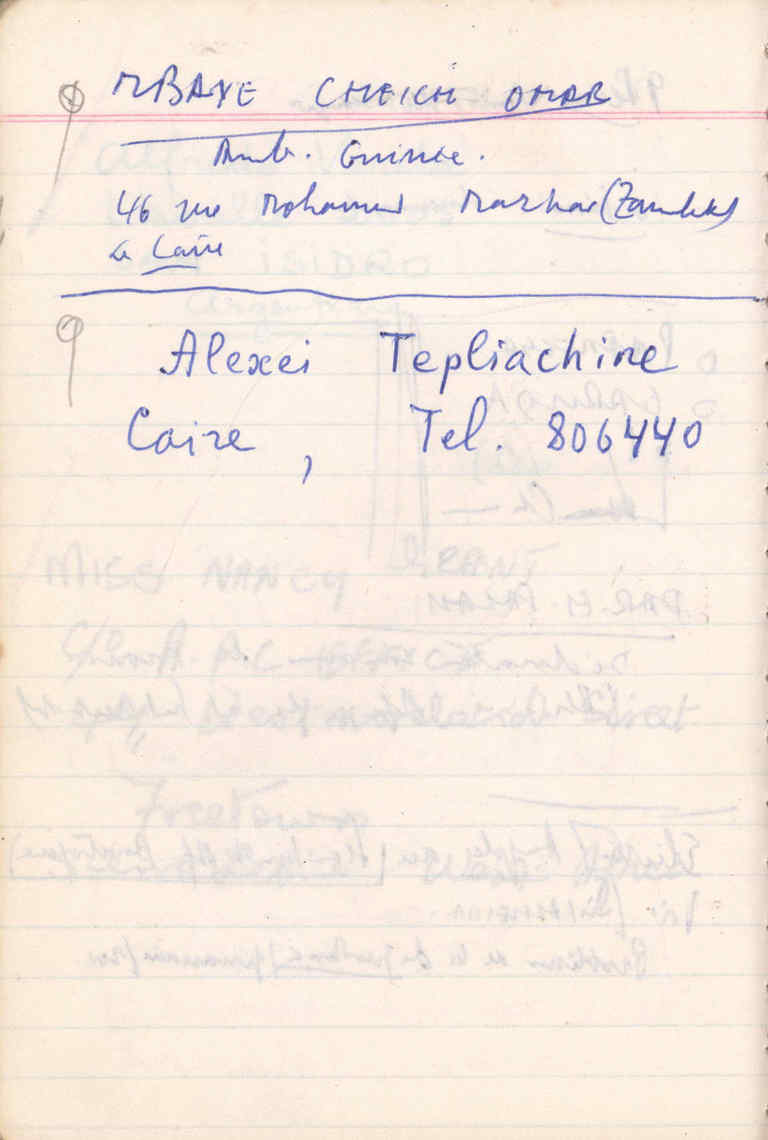 MBAYE CHEICH OMAR
Amb. Guinée.
46 rue Mohamed Mazhar (Zamalek)
Le Caire
Alexei Tepliachine
Caire, Tel. 806440